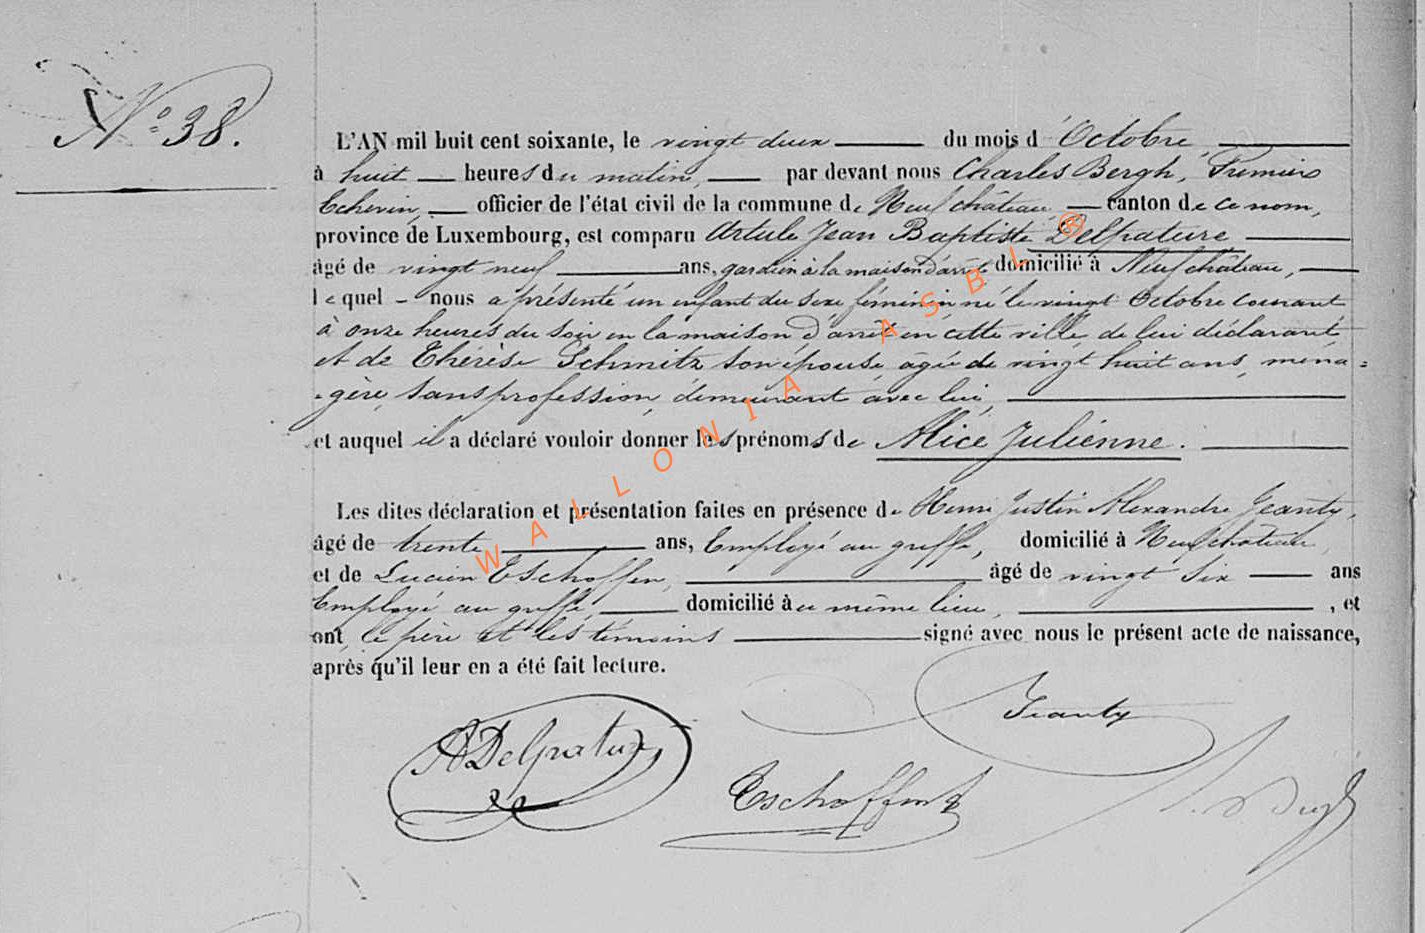 N° 38.
L'AN mil huit cent soixante, le vingt deux du mois d'Octobre,
à huit heures du matin, par devant nous Charles Bergh, Premier
Echevin, officier de l'état civil de la commune de Neufchâteau canton de ce nom,
province de Luxembourg, est comparu Artule Jean Baptiste Delpature
âgé de vingt neuf ans, gardien à la maison d'arrêt domicilié à Neufchâteau,
lequel nous a présenté un enfant du sexe féminin né le vingt Octobre courant
à onze heures du soir en la maison d'arrêt en cette ville de lui déclarant
et de Thérèse Schmitz son épouse âgée de vingt huit ans, ména=
=gère, sans profession, demeurant avec lui,
et auquel il a déclaré vouloir donner les prénoms de Alice Julienne.
Les dites déclaration et présentation faites en présence de Henri Justin Alexandre Jeanty,
âgé de trente ans, Employé au greffe, domicilié à Neufchâteau,
et de Lucien Eschoffen, âgé de vingt six ans
Employé au greffe, domicilié à ce même lieu, , et
ont, le père et les témoins signé avec nous le présent acte de naissance,
après qu'il leur en a été fait lecture.
ADelpature
Jeanty
Eschoffen
WALLONIA ASBL ®